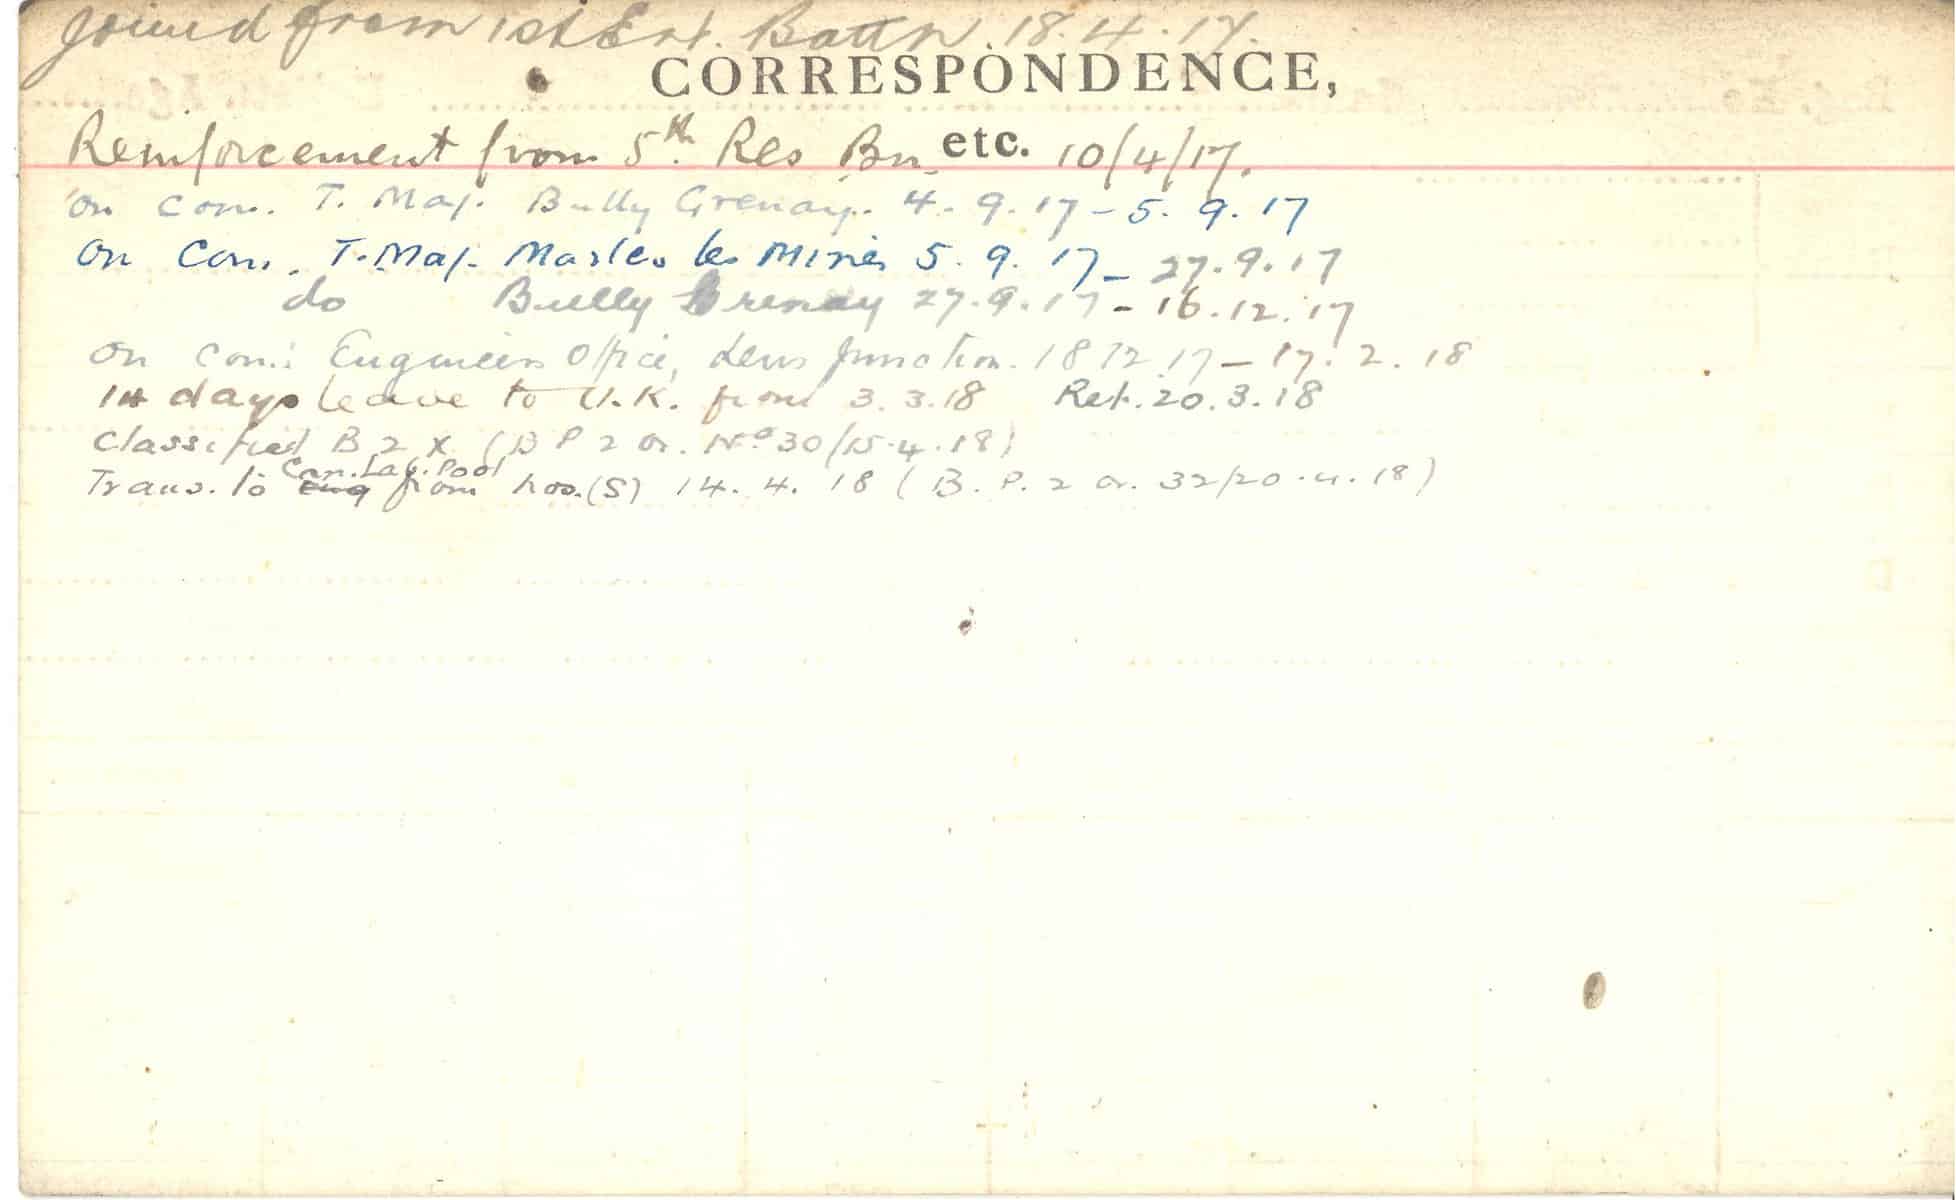 Joined from 1st Ent. Battn. 18.4.17.
CORRESPONDENCE,
Reinforcement from 5th. Res Bn. etc. 10/4/17.
On Com. T. Maj. Bully Grenay. 4.9.17 - 5.9.17
On Com. T. Maj. Marles les Mines 5.9.17 - 27.9.17
do Bully Grenay 27.9.17 - 16.12.17
On Com: Engineers Office, Lens Junction. 18 12 17 - 17.2.18
14 days leave to U.K. from 3.3.18 Ret. 20.3.18
Classified B 2 X (B P 2 or. No 30/15.4.18)
Trans. to Can. Lab. Pool from hos. (S) 14.4.18 (B.P. 2 or. 32/20.4.18)